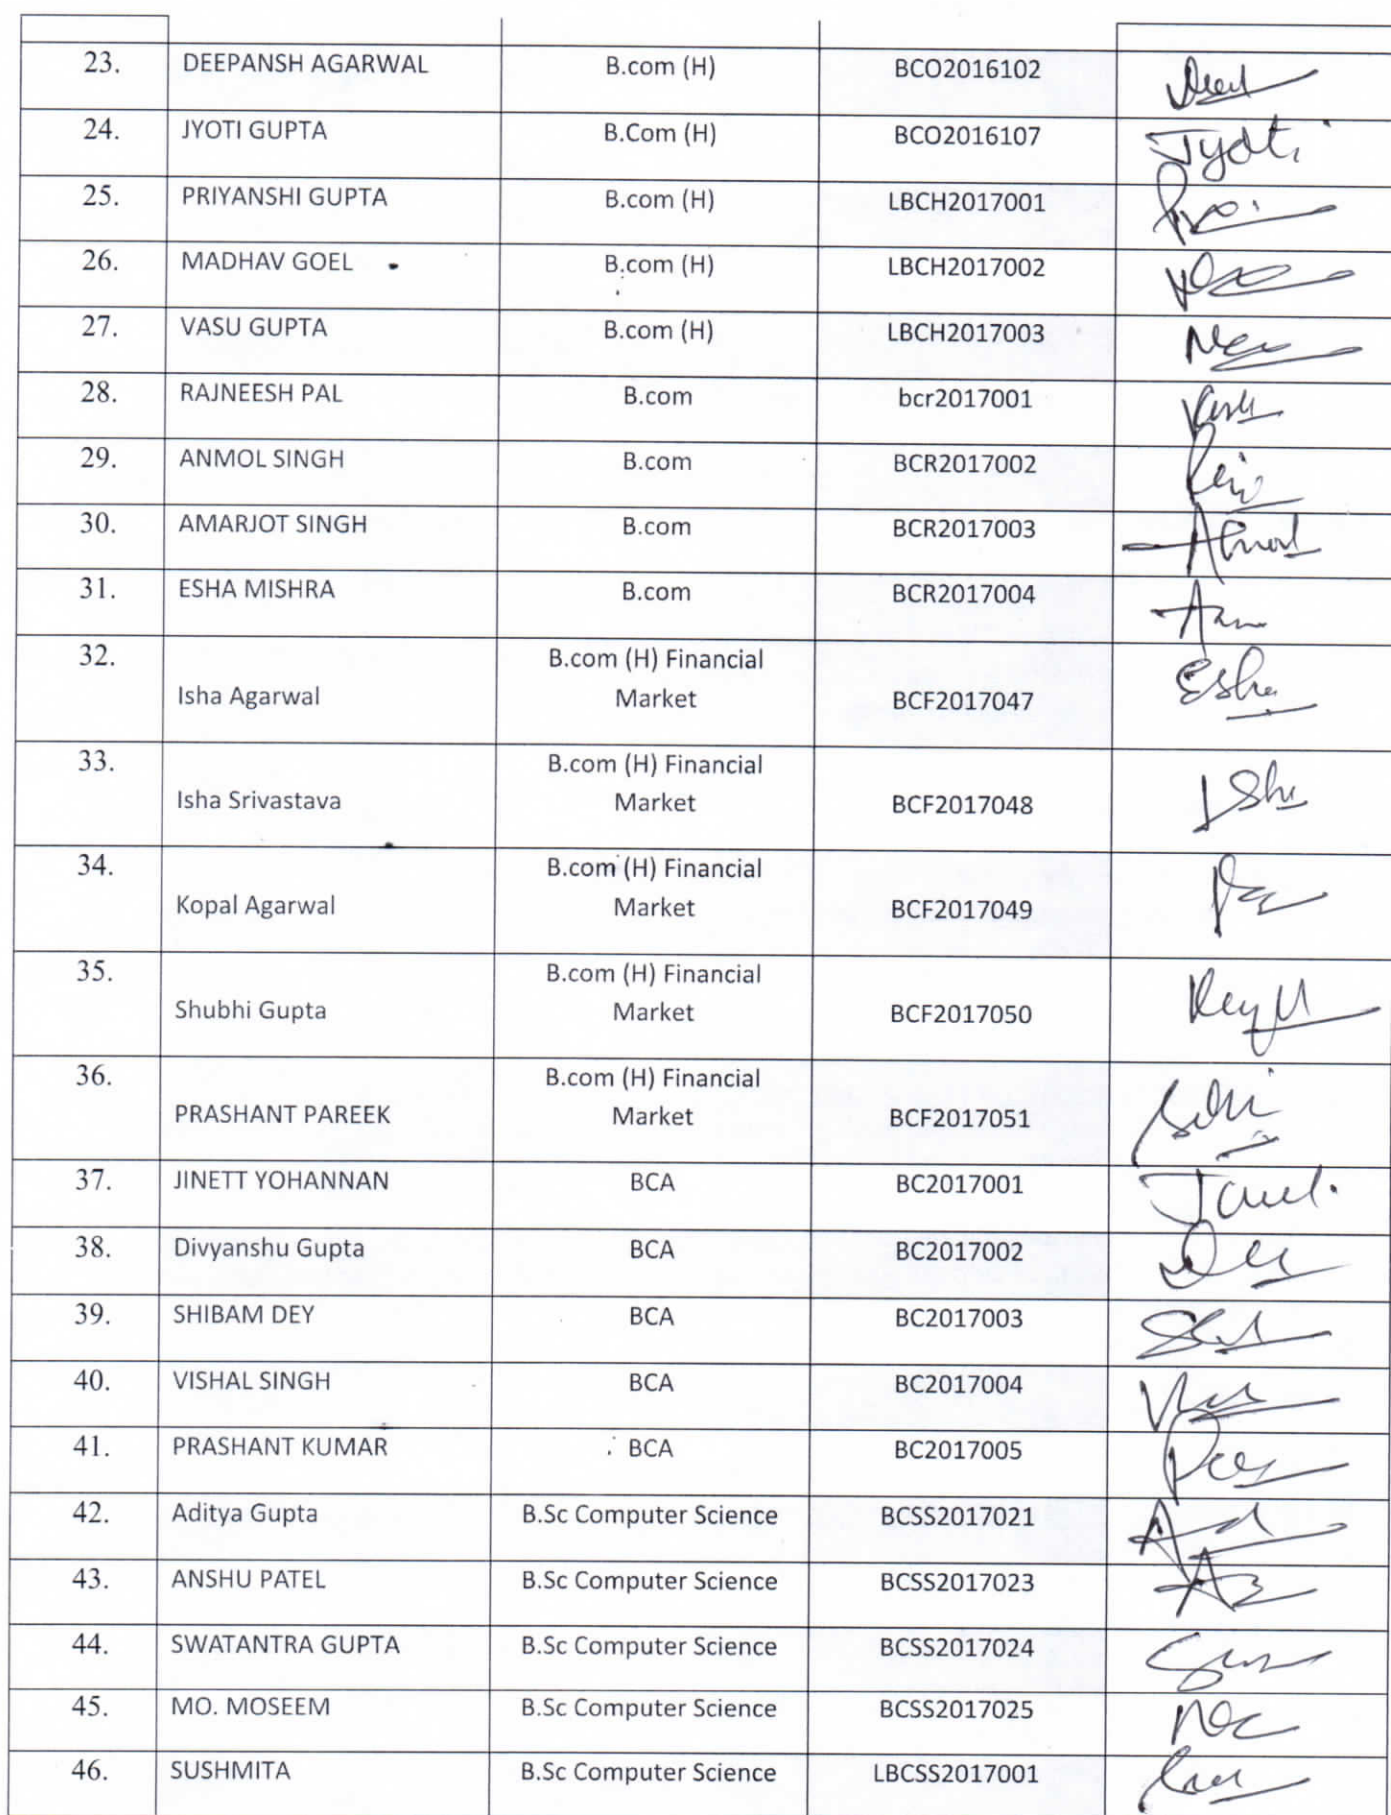 23. DEEPANSH AGARWAL B.com (H) BCO2016102
24. JYOTI GUPTA B.Com (H) BCO2016107 Jyoti
25. PRIYANSHI GUPTA B.com (H) LBCH2017001
26. MADHAV GOEL B.com (H) LBCH2017002
27. VASU GUPTA B.com (H) LBCH2017003
28. RAJNEESH PAL B.com bcr2017001
29. ANMOL SINGH B.com BCR2017002
30. AMARJOT SINGH B.com BCR2017003
31. ESHA MISHRA B.com BCR2017004
32. B.com (H) Financial
Isha Agarwal Market BCF2017047 Esha
33. B.com (H) Financial
Isha Srivastava Market BCF2017048 Isha
34. B.com (H) Financial
Kopal Agarwal Market BCF2017049
35. B.com (H) Financial
Shubhi Gupta Market BCF2017050
36. B.com (H) Financial
PRASHANT PAREEK Market BCF2017051
37. JINETT YOHANNAN BCA BC2017001
38. Divyanshu Gupta BCA BC2017002
39. SHIBAM DEY BCA BC2017003
40. VISHAL SINGH BCA BC2017004
41. PRASHANT KUMAR BCA BC2017005
42. Aditya Gupta B.Sc Computer Science BCSS2017021
43. ANSHU PATEL B.Sc Computer Science BCSS2017023
44. SWATANTRA GUPTA B.Sc Computer Science BCSS2017024
45. MO. MOSEEM B.Sc Computer Science BCSS2017025
46. SUSHMITA B.Sc Computer Science LBCSS2017001